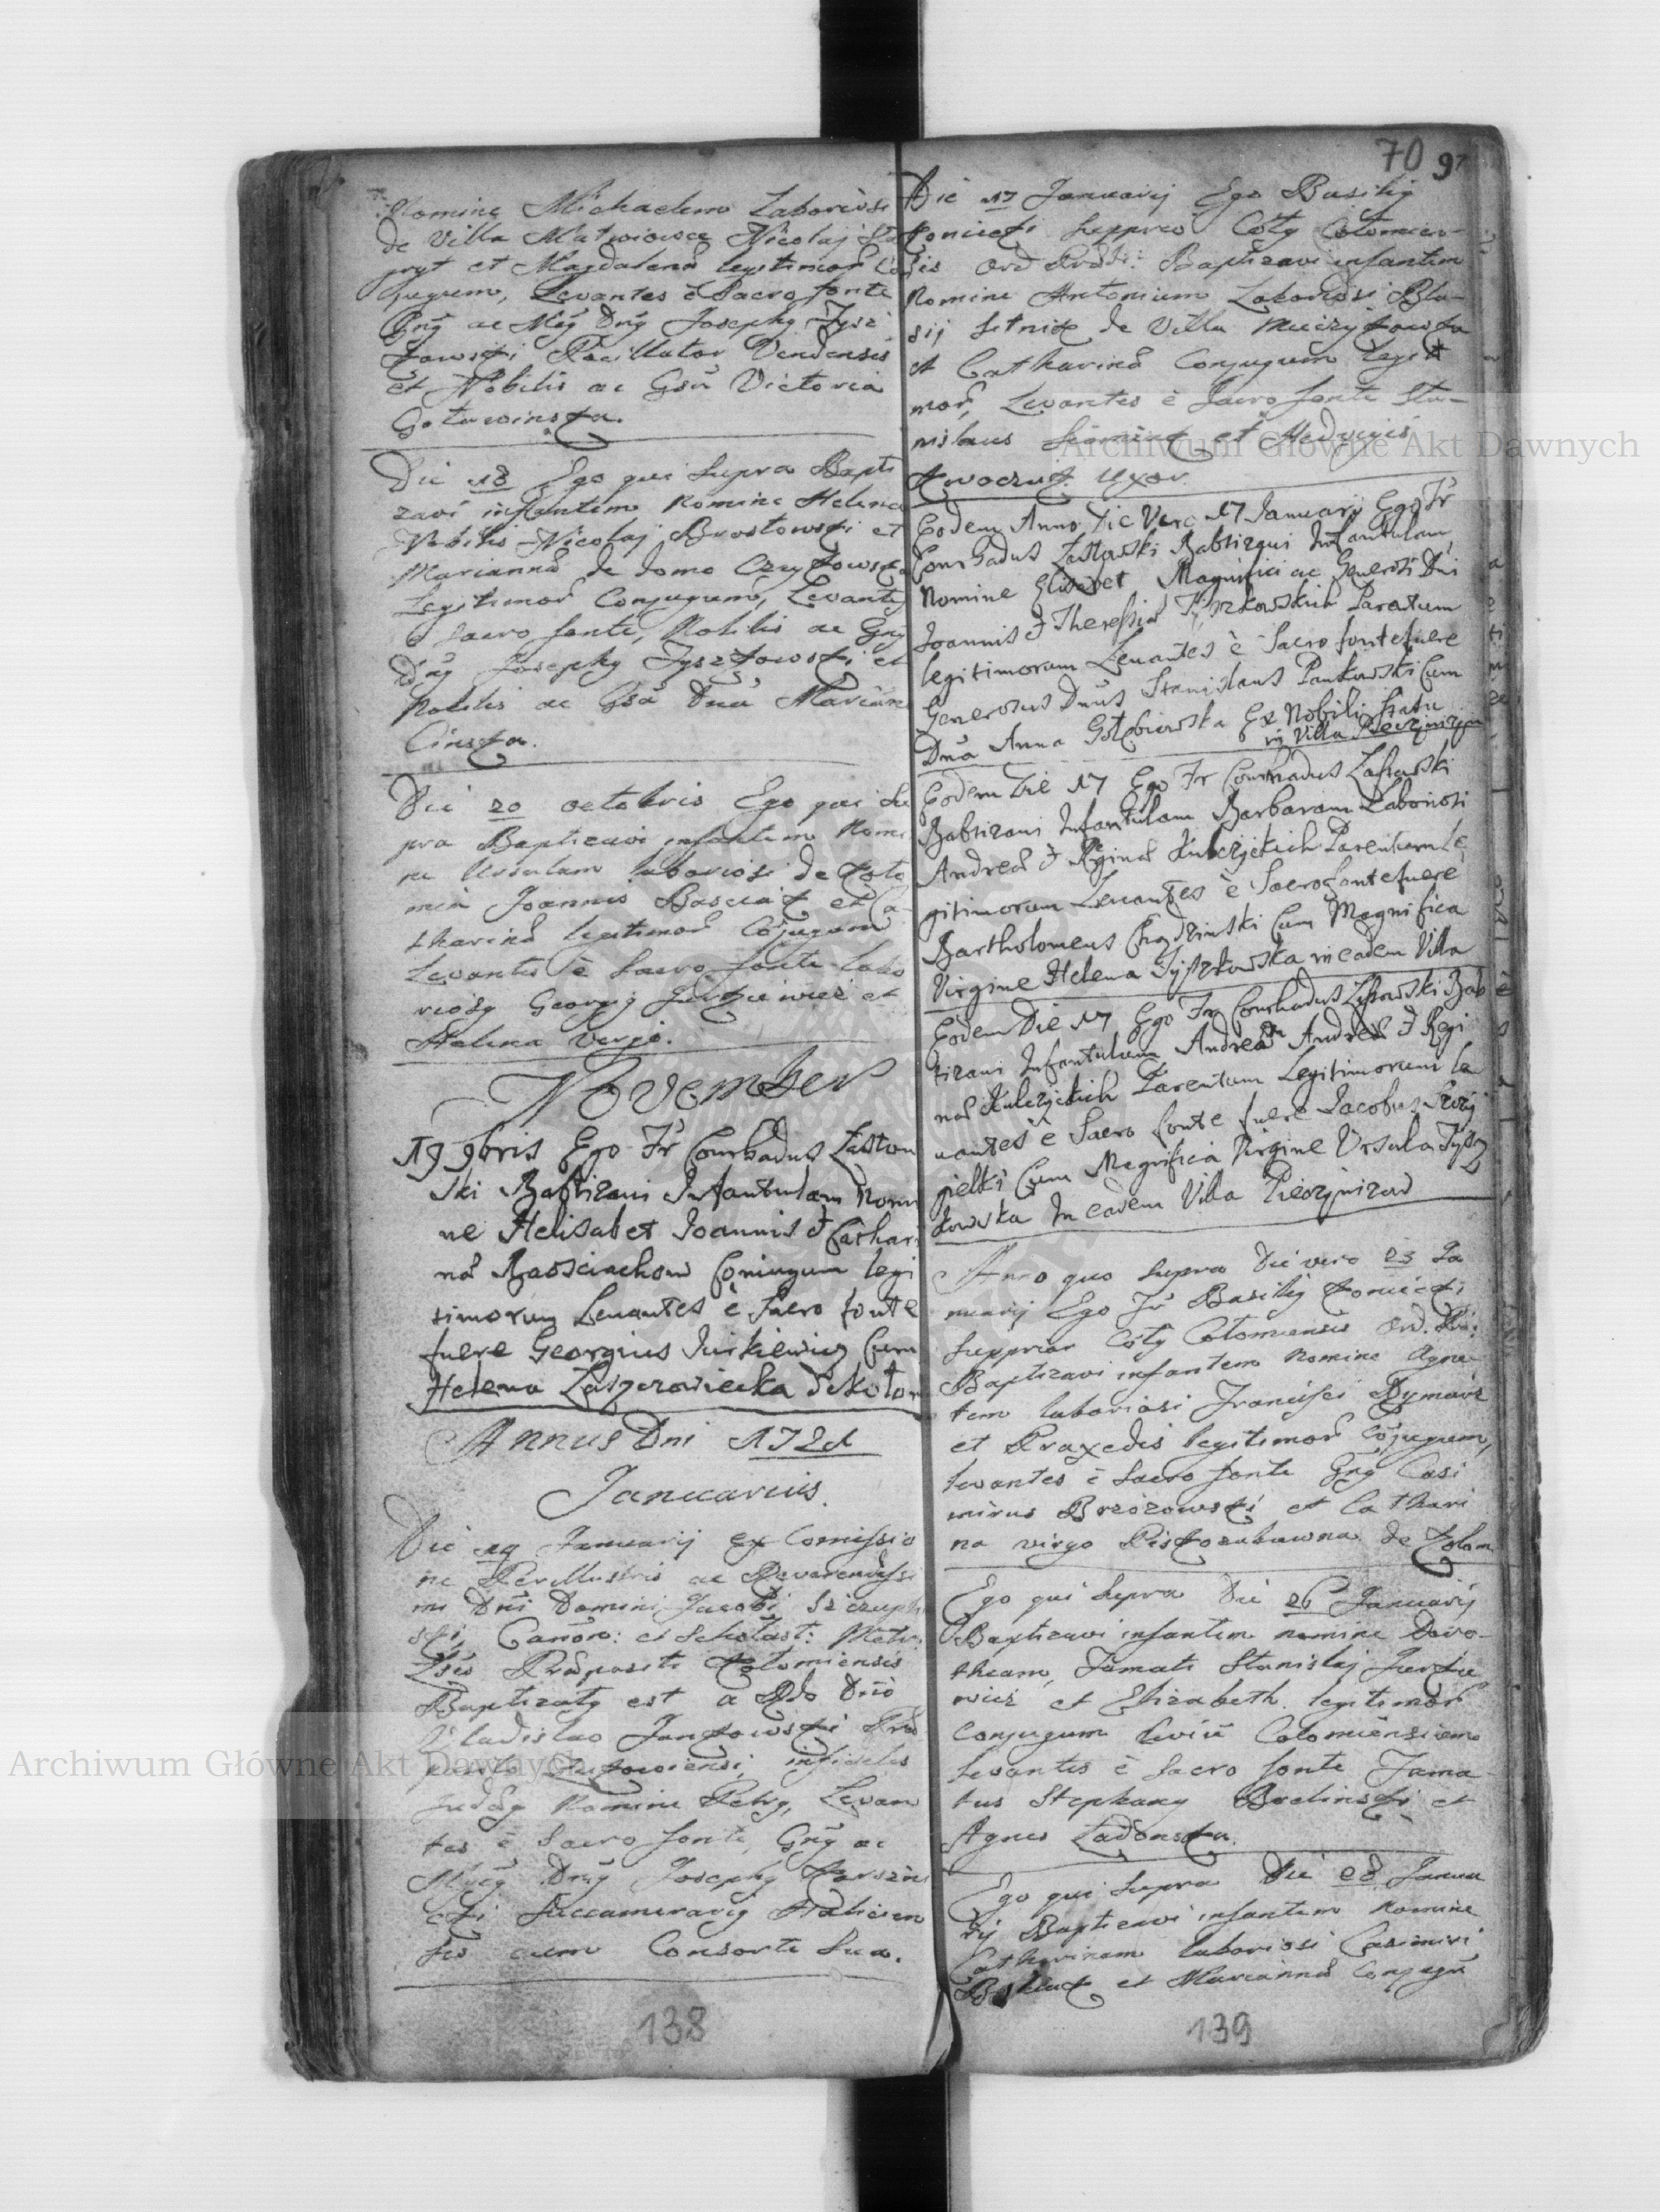 Nomine Michaelem Laboriosi
de Villa Matwiowce Nicolaj
et Magdalena legitimor Co
jugum, Levantes è Sacro fonte
Gnŷ ac Mgŷ Dnŷ Josephŷ Tysz
kowski Pocillator Vendensis
et Nobilis ac Gsa Victoria
Gotuwinska.
Die 18 Ego qui supra Bapti
zavi infantem Nomine Helena
Nobilis Nicolaj Brostowski et
Marianna de domo Czuykowska
Legitimor Conjugum, Levantes
è Sacro fonte, Nobilis ac Gnŷ
Dnŷ Josephŷ Tyszkowski et
Nobilis ac Gsa Dna Marian
Cinska.
Die 20 octobris Ego qui Su
pra Baptizavi infantem Nomi
ne Ursulam laboriosi de Kolo
mia Joannis Basciak et Ca
tharina legitimor Cojugum
Levantes è Sacro fonte labo
riosŷ Georgiŷ Jurkiewicz et
Helena Virgo.
November
19 9bris Ego Fr Conradus Zastow
ski Babtizavi Infantulam Nomi
ne Helisabet Joannis & Cathari
na Basciachow Coniugum legi
timorum Levantes è Sacro fonte
fuere Georgius Jurkiewicz Cum
Helena de Kolom
Annus Dni 1721
Januarius.
Die 19 Januarij ex Comissio
ne Perillustris ac Reverendissi
mi Dni Domini Jacobi
ski, Canon: et Scholast:
Præpositi Kolomiensis
Baptizatŷ est a Rdo Dno
Vladislao Jankowski
infidelis
Judæŷ Nomine Petrŷ, Levan
tes è Sacro fonte, Gnŷ ac
Dnŷ Josephŷ
cki Succamerariŷ Halicien
sis cum Consorte Sua.
138
70 97
Die 17 Januarij Ego Basiliŷ
Konicki Supprior Cotŷ Colomien-
sis Ord Prædi: Baptizavi infantem
Nomine Antonium Laboriosi Bla-
sij Setnik de Villa
et Catharina Conjugum Legiti
mor, Levantes è Sacro fonte Sta-
nislaus et Hedvigis
Uxor.
Eodem Anno Die Vero 17 Januarij Ego Fr
Conradus Zastowski Babtizavi Infantulam
Nomine Elisabet Magnifici ac Generosi Dni
Joannis & Theressia Tyszkowskich Parentum
legitimorum Levantes è Sacro fonte fuere
Generosus Dnus Stanislaus Pankowski Cum
Dna Anna Gołębiowska Ex Nobili Statu
in Villa
Eodem Die 17 Ego Fr Conradus Zastowski
Babtizavi Infantulam Barbaram Laboriosi
Andrea & Regina Kulczyckich Parentum Le
gitimorum Levantes è Sacro fonte fuere
Bartholomeus Cum Magnifica
Virgine Helena Tyszkowska in eadem Villa
Eodem Die 17 Ego Fr Conradus Zastowski Bab
tizavi Infantulum Andream Andrea & Regi
na Kulczyckich Parentum Legitimorum Le
vantes è Sacro fonte fuere Jacobus
Cum Magnifica Virgine Ursula Tysz
kowska In eadem Villa
Anno quo supra Die vero 23 Ja
nuarij Ego Fr Basiliŷ Konicki
Supprior Cotŷ Colomiensis Ord. Præ:
Baptizavi infantem Nomine Agne-
tem laboriosi Francisci
et Praxedis legitimor Cojugum,
levantes è Sacro fonte Gnŷ Casi
mirus Brzozowski et Cathari
na virgo de Kolom
Ego qui supra Die 26 Januarij
Baptizavi infantem nomine Doro-
theam, Famati Stanislaj Jurkie
wicz et Elizabeth legitimor
Conjugum Civiu Colomiensium
levantes è Sacro fonte Fama-
tus Stephanŷ et
Agnes Ladonska.
Ego qui supra Die 28 Janua
rij Baptizavi infantem Nomine
Catharinam laboriosi Casimiri
et Marianna Conjugu
139
Archiwum Główne Akt Dawnych
Archiwum Główne Akt Dawnych